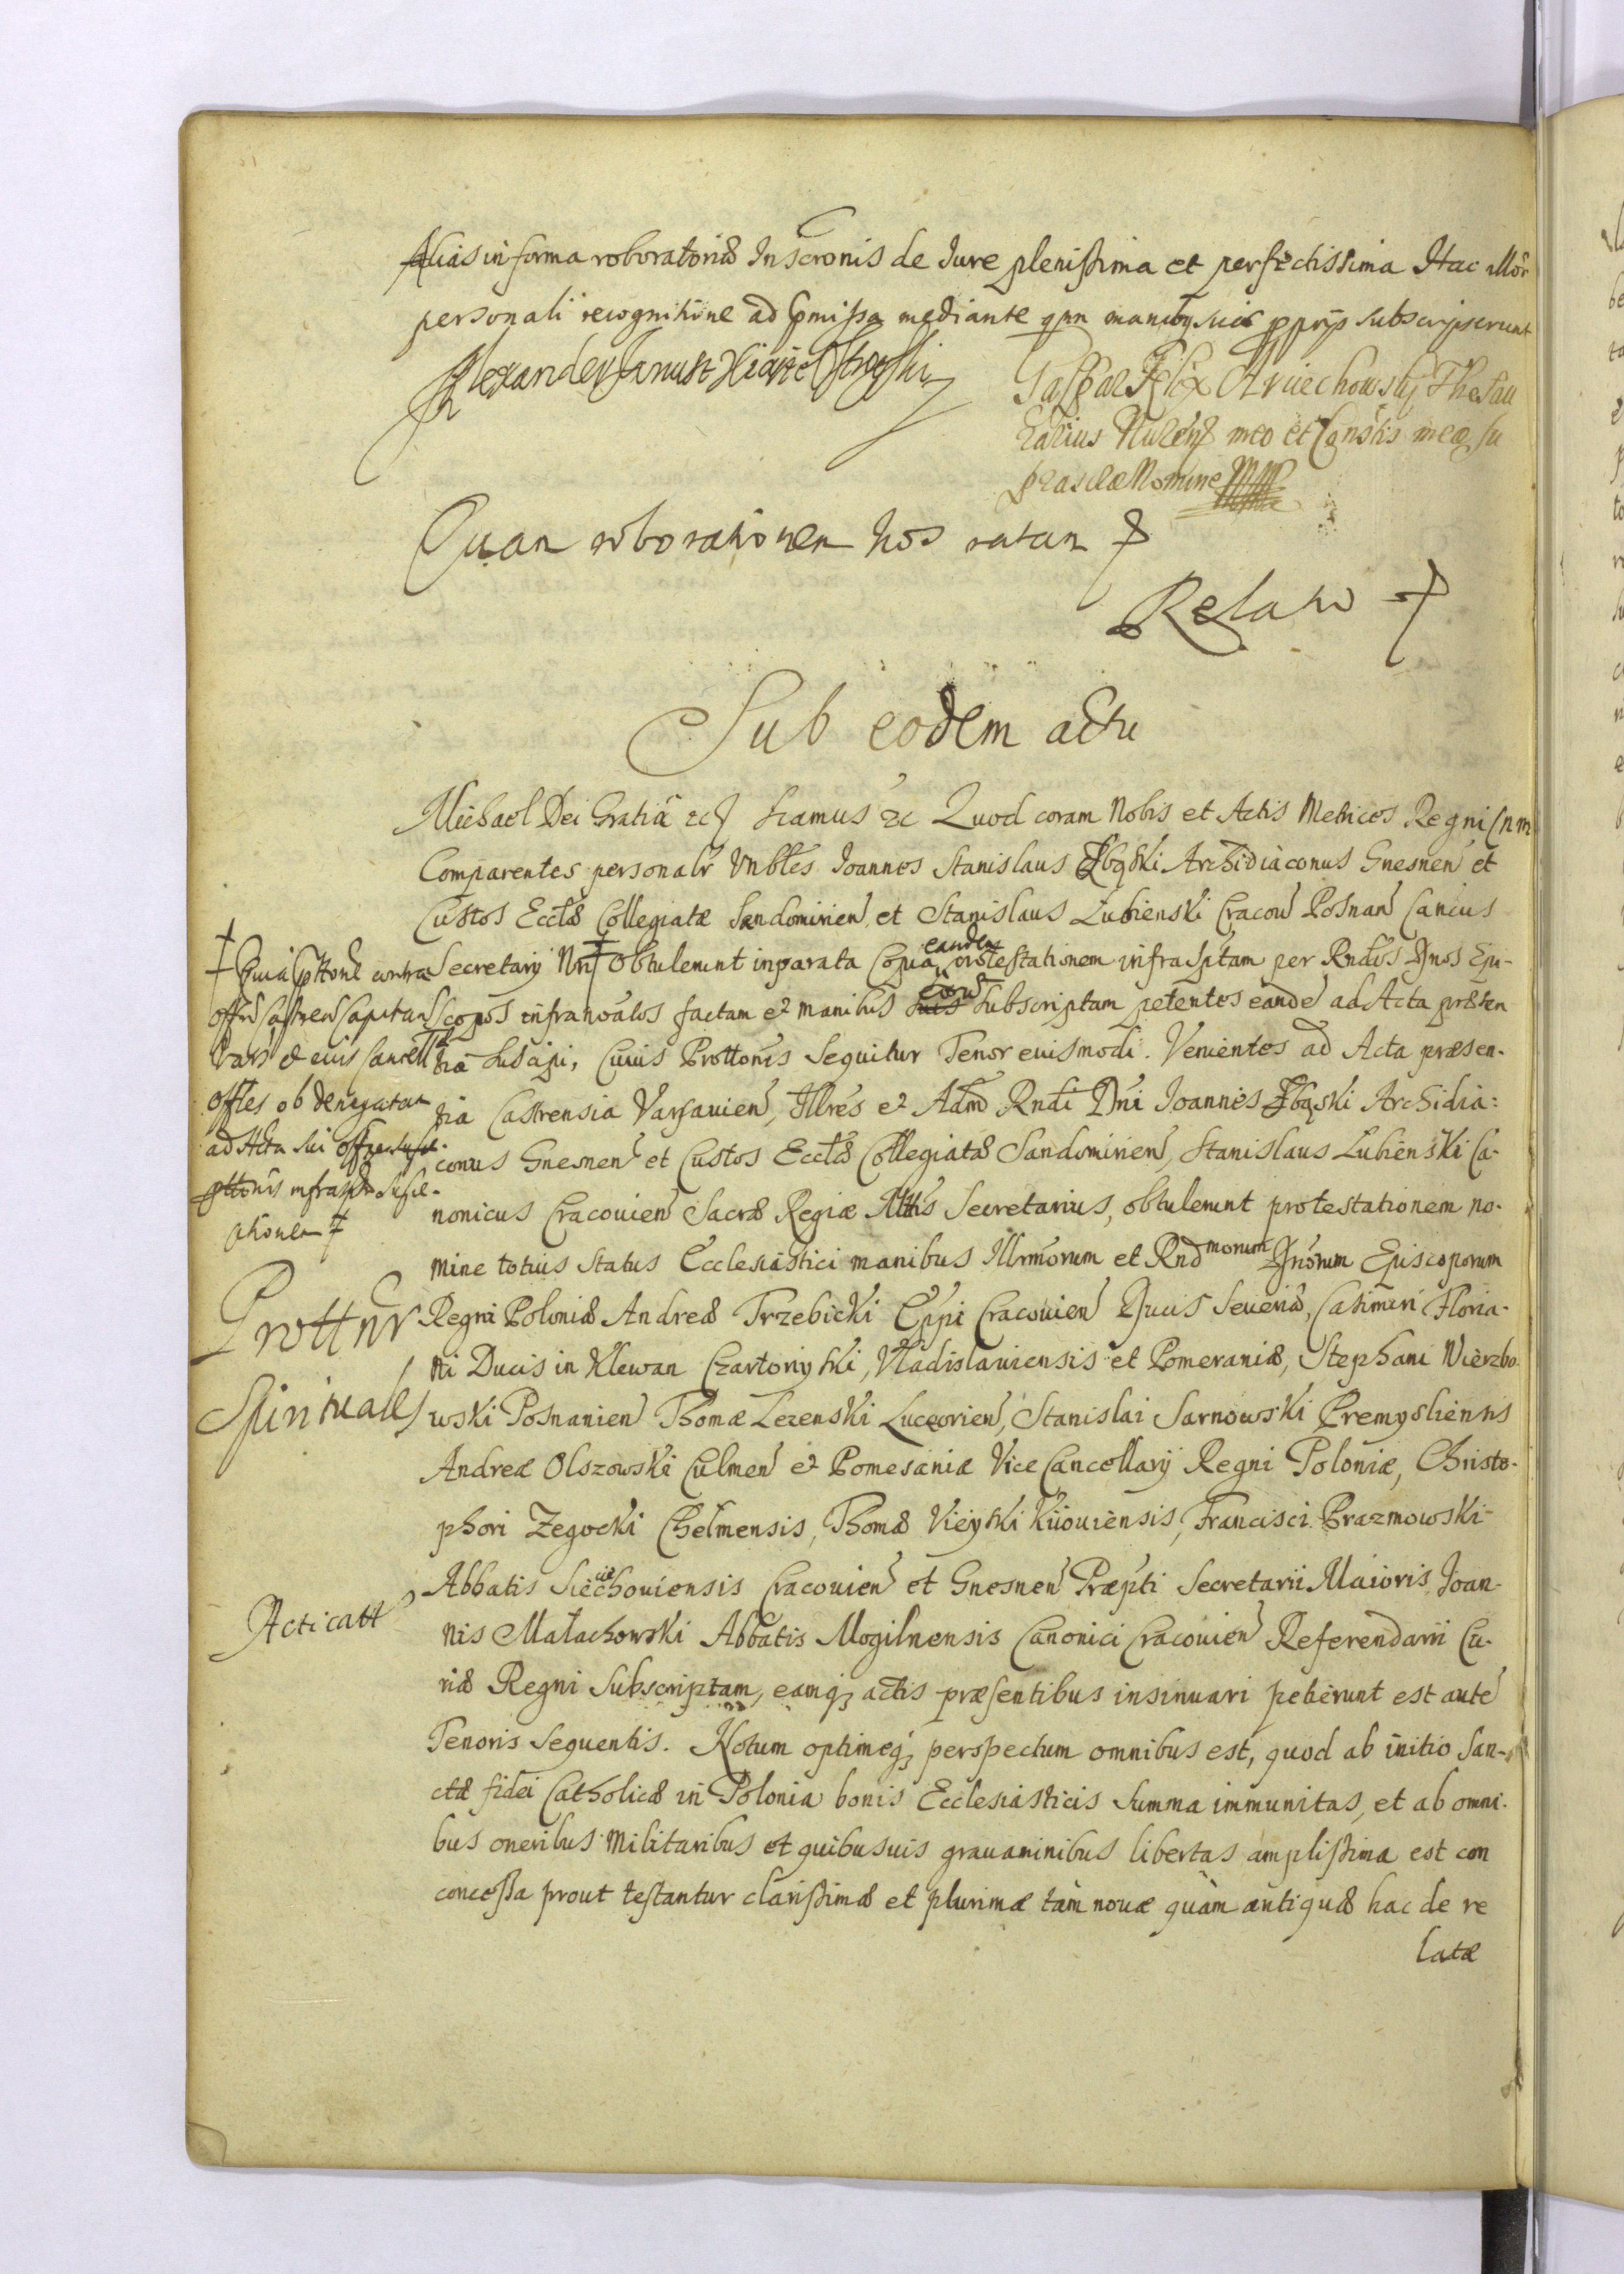 Alias in forma roboratoriæ Inscronis de Jure plenissima et perfectissima Hac illor
personali recognitione ad præmissa mediante qun manibus suis pprijs subscripserunt
Alexander Janust Xiąże Ostrogski
Gaspar Felix
rarius meo et Consortis meæ su
prasctæ Nomine Mpp
Quam roborationem nos ratam
Relatio
Sub eodem actu
Michael Dei Gratia etc Sramus etc Quod coram Nobis et Actis Metrices Regni Nrni
Comparentes personalr Vnbles Joannes Stanislaus Zbąski Archidiaconus Gnesnen et
Custos Ecctæ Collegiatæ Sandomirien et Stanislaus Lubienski Cracou Posnan Cancus
Secretary Nri Obtulerunt in parata Copia eandem protestationem infrasptam per Rndos Dnos Epi-
scopos infranoatos factam et manibus suis eorū Subscriptam petentes eandē ad Acta præsen
tia Suscipi, Cuius Prottonis Sequitur Tenor euismodi. Venientes ad Acta præsen-
tia Castrensia Varsauien, Illres et Admd Rndi Dni Joannes Zbąski Archidia:
conus Gnesnen et Custos Ecctæ Collegiatæ Sandomirien, Stanislaus Lubienski Ca-
nonicus Cracouien Sacræ Regiæ Mttis Secretarius, obtulerunt protestationem no-
mine totius Status Ecclesiastici manibus Illrmorum et Rndmorum Dnorum Episcoporum
Regni Poloniæ Andreæ Trzebicki Eppi Cracouien Ducis Seueriæ, Casimiri Floria-
ni Ducis in Klewan Czartoryski, Vladislauiensis et Pomeraniæ, Stephani Wierzbo
wski Posnanien Thomæ Lezenski Luceorien, Stanislai Sarnowski Premysliensis
Andreæ Olszowski Culmen et Pomesaniæ Vice Cancellarij Regni Poloniæ, Christo-
phori Zegocki Chelmensis, Thomæ Vieyski Kiiouiensis, Francisci Prazmowski
Abbatis Sieciechouiensis Cracouien et Gnesnen Præpti Secretarii Maioris, Joan-
nis Małachowski Abbatis Mogilnensis Canonici Cracouien Referendarii Cu-
riæ Regni Subscriptam, eamq; actis præsentibus insinuari petierunt est autē
Tenoris Sequentis. Notum optimeq; perspectum omnibus est, quod ab initio San-
ctæ fidei Catholicæ in Polonia bonis Ecclesiasticis Summa immunitas, et ab omni-
bus oneribus Militaribus et quibusuis grauaminibus libertas amplissima est con
concessa prout testantur clarissimæ et plurimæ tàm nouæ quàm antiquæ hac de re
latæ
contra
Offm Castren Capitan
Vars et eius Cancell
Offles ob denegatam
ad Acta sui Off
pttonis infraspt suscep-
tionem
Prottnr
Spirituales
Acticatt